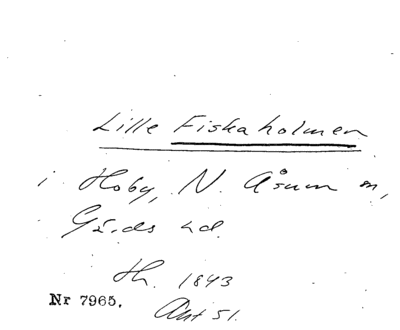 Lille Fiskaholmen
i Hoby, N. Åsum sn,
Gärds hd.
Hh. 1843
Nr 7965.
Akt 51.